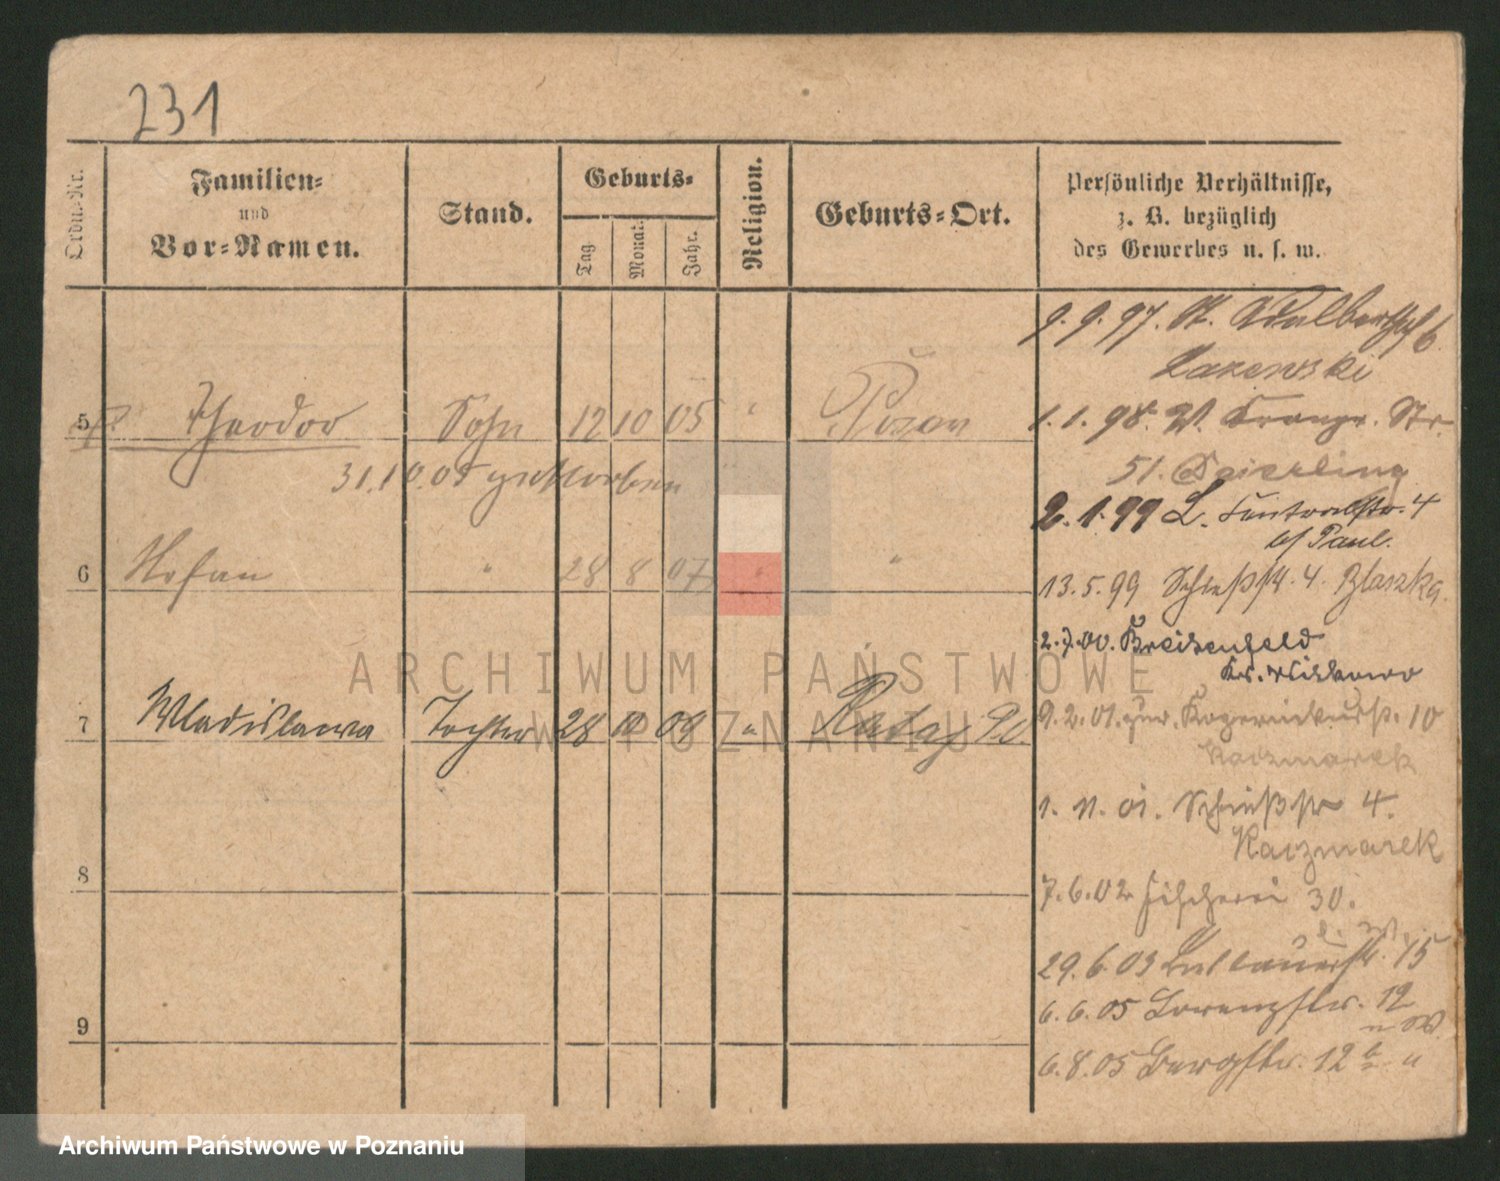 231
Ordn.-Nr.
Familien-
und
Vor-Namen.
Stand.
Geburts-
Tag
Monat.
Jahr.
Religion.
Geburts-Ort.
Persönliche Verhältnisse,
z. B. bezüglich
des Gewerbes u. s. w.
9. 9. 97. St. Adalbertstr 6
Lazewski
5 Theodor Sohn 12 10 05 " Posen
1. 1. 98. W. Str.
31.10.05 gestorben
51.
2. 1. 99 L. 4
b/ Paul.
6 " 28 8 07 " "
13. 5. 99 Schießstr. 4. Blaszka.
2. 7. 00. Breitenfeld
Kr. Witkowo
7 Wladislawa Tochter 28 10 09 " Rataj
9. 2. 01. zur. 10
Kaczmarek
1. 11. 01. Schießstr 4.
Kaczmarek
8
7. 6. 02 Fischerei 30.
29. 6. 03 15
6. 6. 05 Lorenzstr. 12
9
6. 8. 05 Bergstr. 12 b
ARCHIWUM PAŃSTWOWE
W POZNANIU
Archiwum Państwowe w Poznaniu